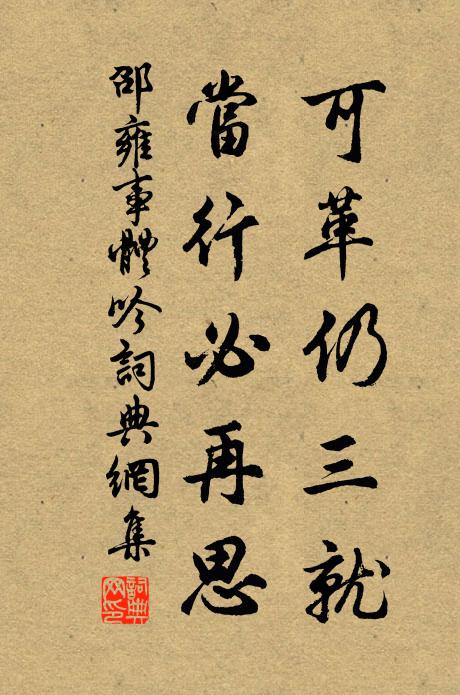 可革仍三就
當行必再思
邵雍事體吟詞典網集
詞典网印